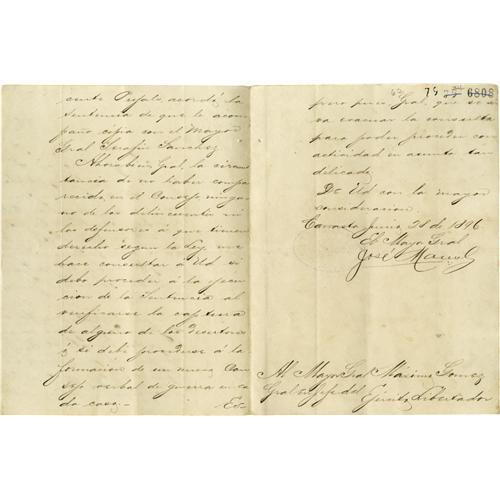 cente Pujals, acordó la
sentencia de que le acom
paño cópia con el Mayor
Gral Serafin Sanchez
Ahora bien, Gral. la circuns
tancia de no haber compa
recido, en el Consejo ningu
no de los delincuentes ni
los defensores á que tienen
derecho segun la ley, me
hace consultar á Ud si
debo proceder á la ejecu
cion de la Sentencia al
verificarse la captura
de alguno de los desertores
ó si debe procederse á la
formacion de un nuevo Con
sejo verbal de guerra en ca
da caso.
Es-
74 6808
pero pues, Gral, que se sir
va evacuar la consulta
para poder proceder con
actividad en asunto tan
delicado.
De Ud con la mayor
consideracion
Junio, 28 de 1896
El Mayor Gral
José
Al Mayor Gral Máximo Gomez
Gral en Jefe del Ejército Libertador